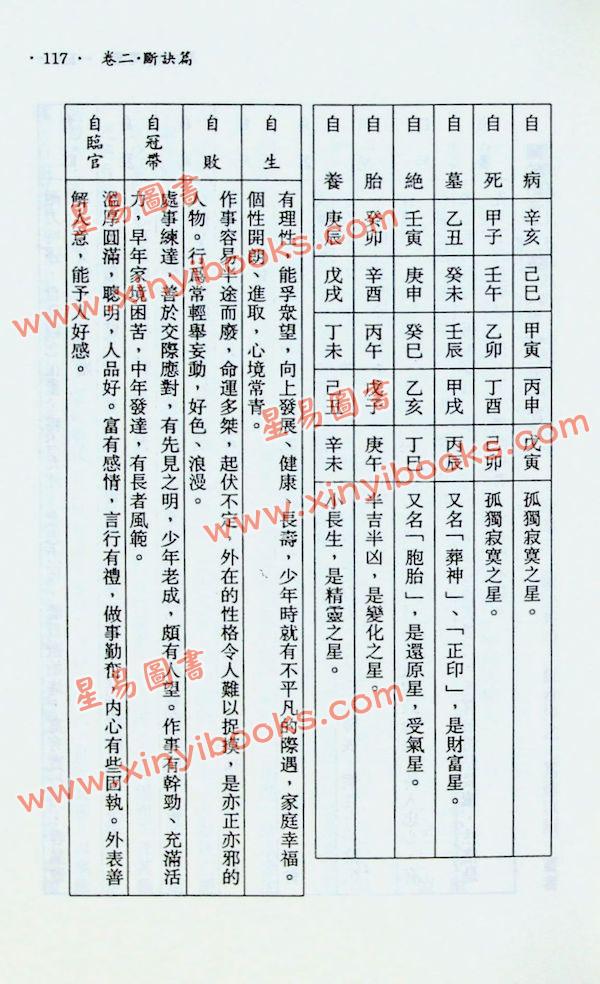 ・117・ 卷二・斷訣篇
自病 辛亥 己巳 甲寅 丙申 戊寅 孤獨寂寞之星。
自死 甲子 壬午 乙卯 丁酉 己卯 孤獨寂寞之星。
自墓 乙丑 癸未 壬辰 甲戌 丙辰 又名「葬神」、「正印」，是財富星。
自絕 壬寅 庚申 癸巳 乙亥 丁巳 又名「胞胎」，是還原星，受氣星。
自胎 癸卯 辛酉 丙午 戊子 庚午 半吉半凶，是變化之星。
自養 庚辰 戊戌 丁未 己丑 辛未 小長生，是精靈之星。
自生
有理性，能孚眾望，向上發展、健康、長壽，少年時就有不平凡的際遇，家庭幸福。
個性開朗、進取，心境常青。
自敗
作事容易半途而廢，命運多桀，起伏不定，外在的性格令人難以捉摸，是亦正亦邪的
人物。行為常輕舉妄動，好色、浪漫。
自冠帶
處事練達，善於交際應對，有先見之明，少年老成，頗有人望。作事有幹勁、充滿活
力，早年家境困苦，中年發達，有長者風範。
自臨官
溫厚圓滿，聰明，人品好。富有感情，言行有禮，做事勤奮，內心有些固執。外表善
解人意，能予人好感。
星易圖書
www.xinyibooks.com
星易圖書
www.xinyibooks.com
星易圖書
www.xinyibooks.com